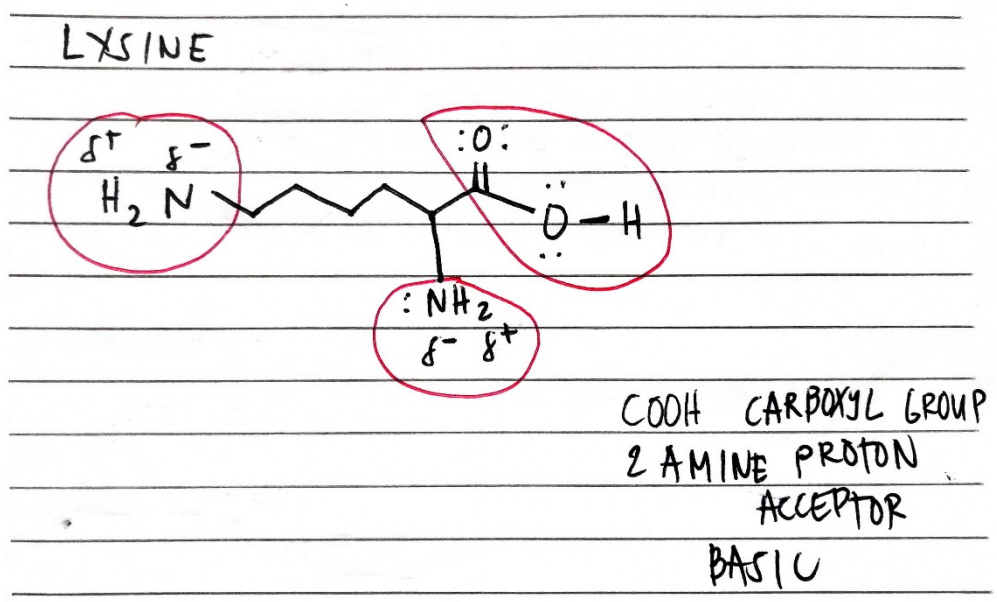 LYSINE
δ+ δ-
H2N
:O:
O-H
:NH2
δ- δ+
COOH CARBOXYL GROUP
2 AMINE PROTON
ACCEPTOR
BASIC